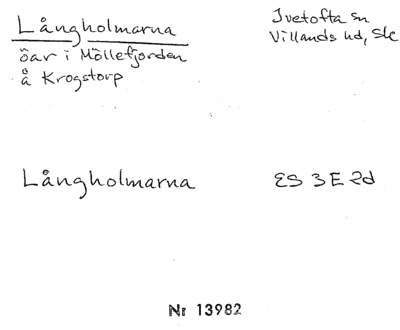 Långholmarna
öar i Möllefjorden
å Krogstorp
Ivetofta sn
Villands hd, Sk
Långholmarna
ES 3E2d
Nr 13982